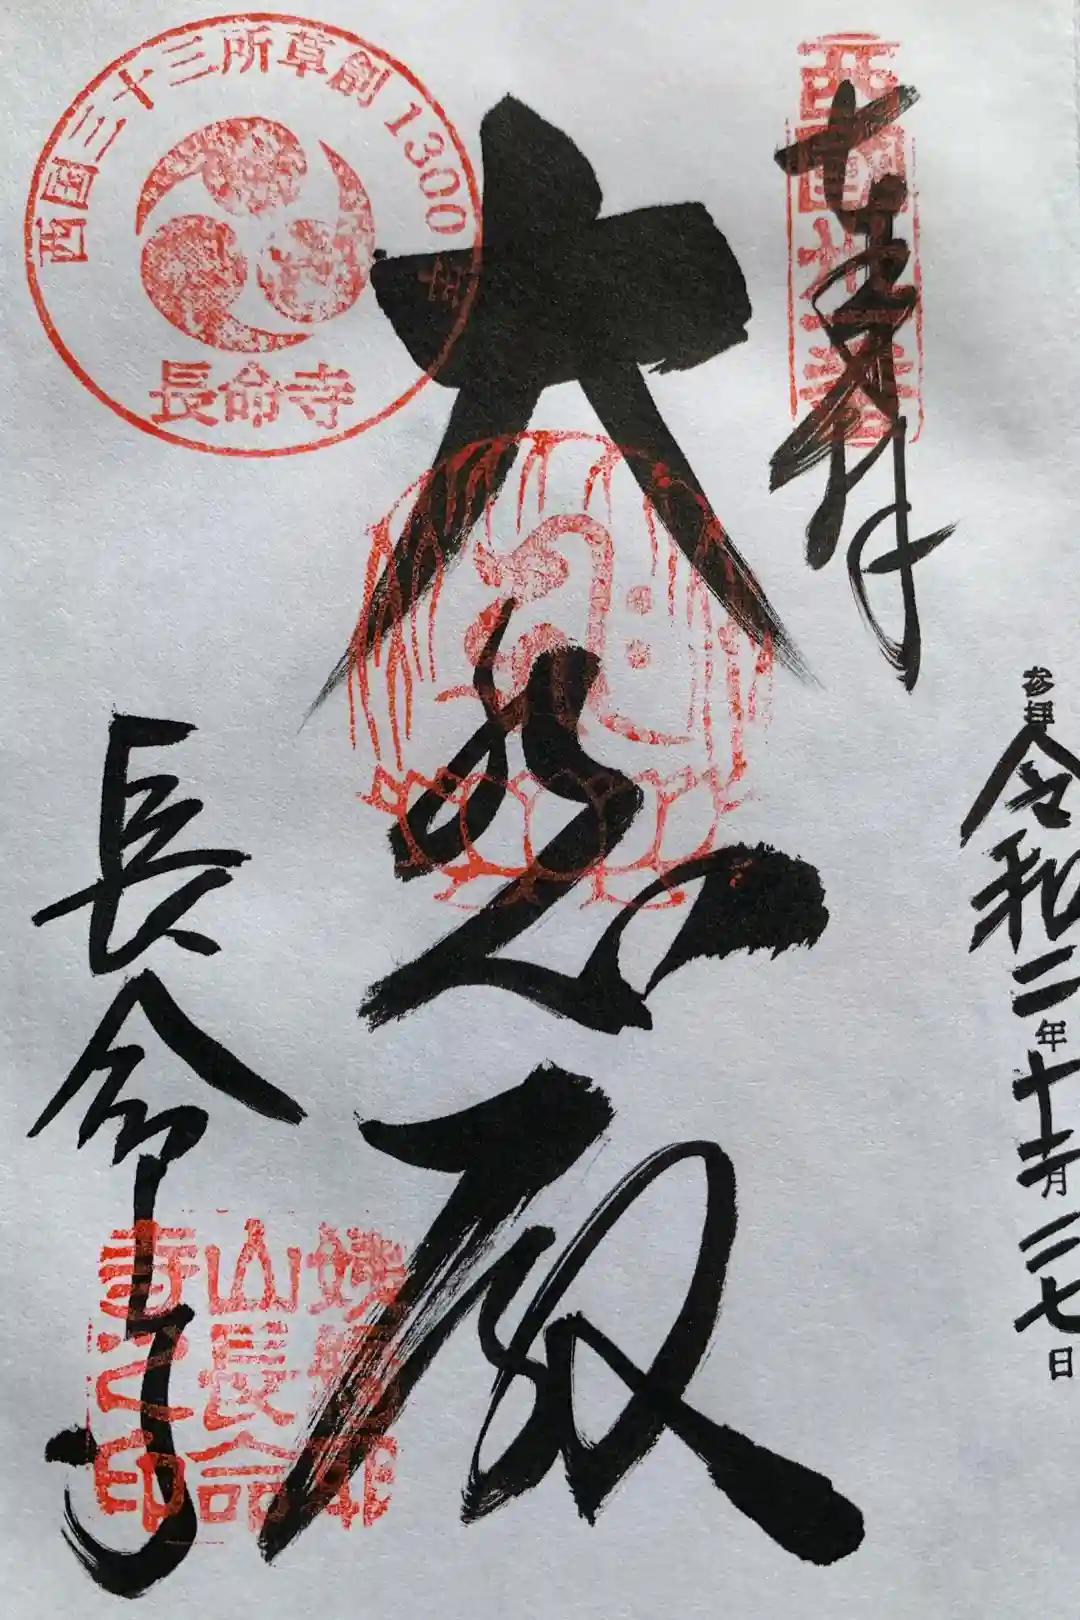 西国三十三所草創1300年
長命寺
西國卅一番
奉拝
大悲殿
長命寺
姨綺耶
山長命
寺之印
参拝 令和二年十一月二七日